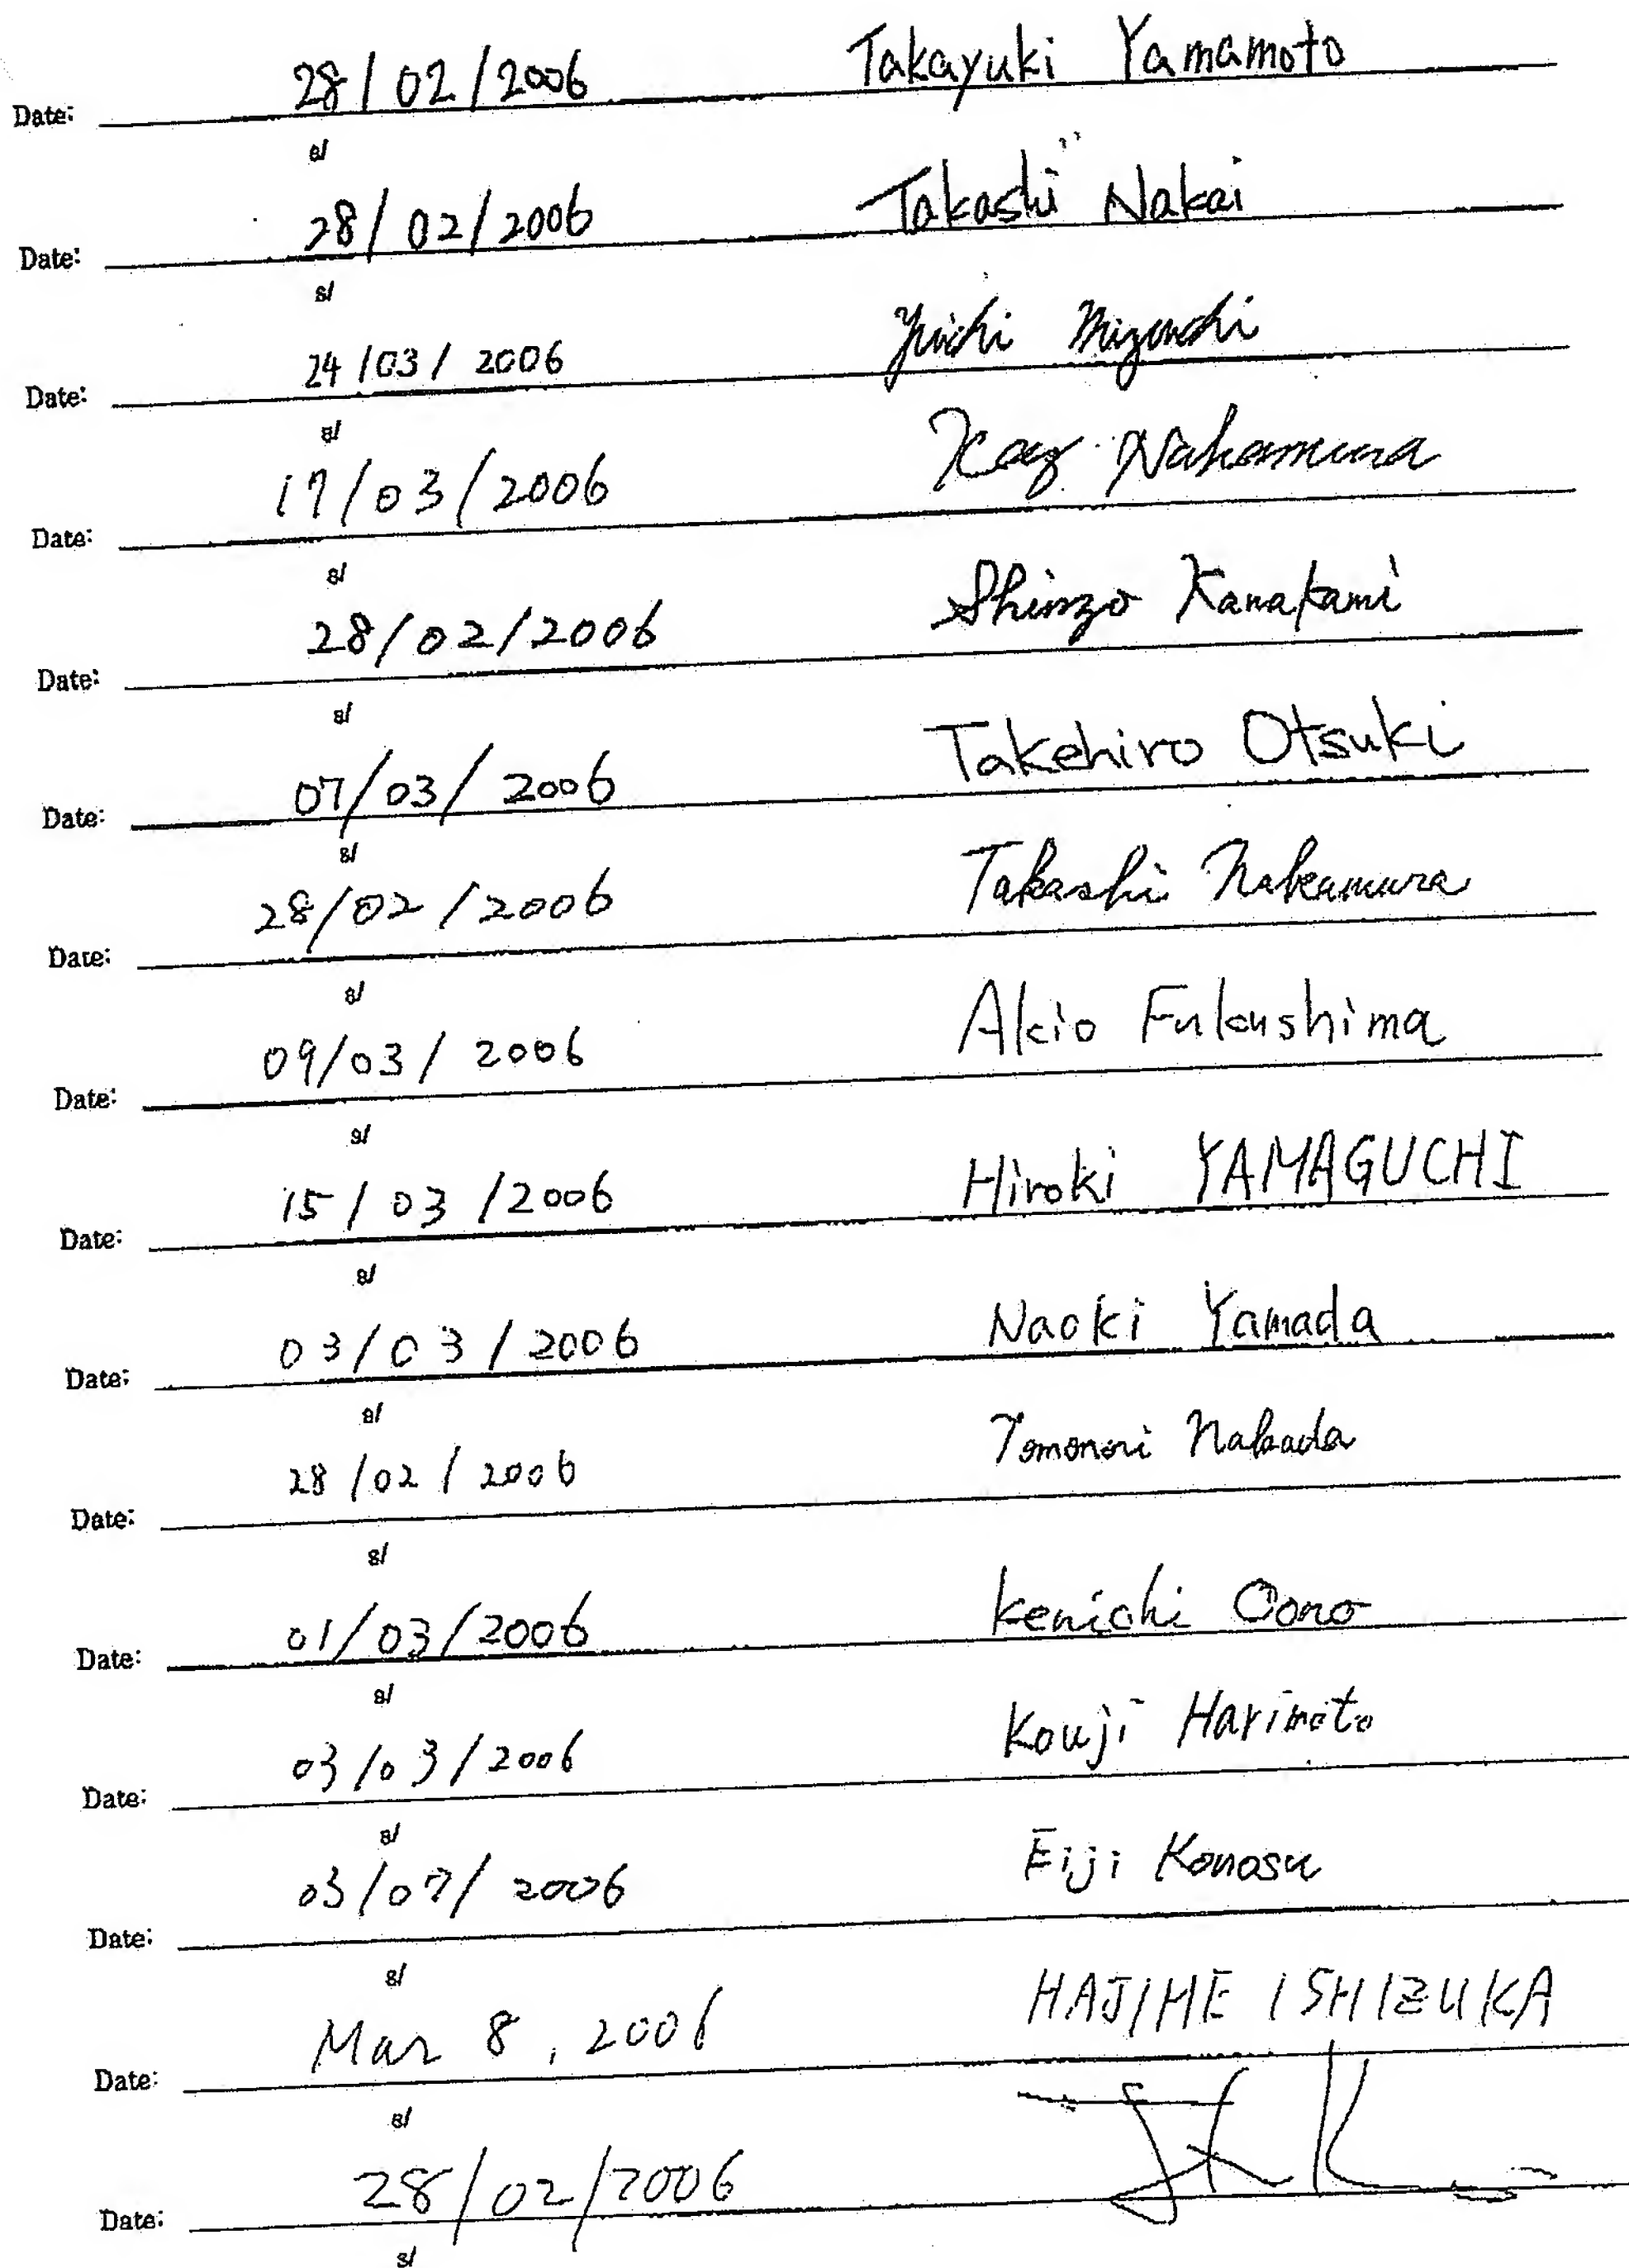 Date: 28/02/2006 Takayuki Yamamoto
s/
Date: 28/02/2006 Takashi Nakai
s/
Date: 24/03/2006 Yuichi Mizuochi
s/
Date: 17/03/2006 Nakamura
s/
Date: 28/02/2006 Shinzo Kanakami
s/
Date: 07/03/2006 Takehiro Otsuki
s/
Date: 28/02/2006 Takashi Nakamura
s/
Date: 09/03/2006 Akio Fukushima
s/
Date: 15/03/2006 Hiroki YAMAGUCHI
s/
Date: 03/03/2006 Naoki Yamada
s/
Date: 28/02/2006 Tomonori Nakada
s/
Date: 01/03/2006 Kenichi Oono
s/
Date: 03/03/2006 Kouji Harimoto
s/
Date: 03/07/2006 Eiji Konosu
s/
Date: Mar 8, 2006 HAJIME ISHIZUKA
s/
Date: 28/02/2006
s/